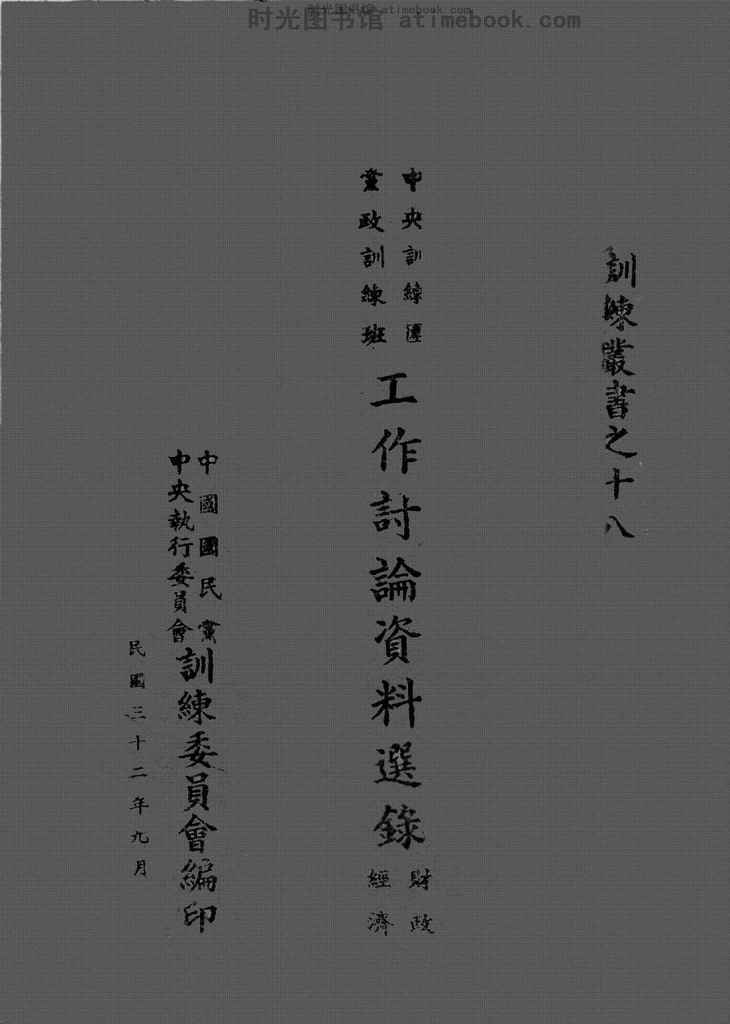 时光图书馆 atimebook.com
时光图书馆 atimebook.com
訓練叢書之十八
中央訓練團
黨政訓練班
工作討論資料選錄
財政
經濟
中國國民黨
中央執行委員會
訓練委員會編印
民國三十二年九月